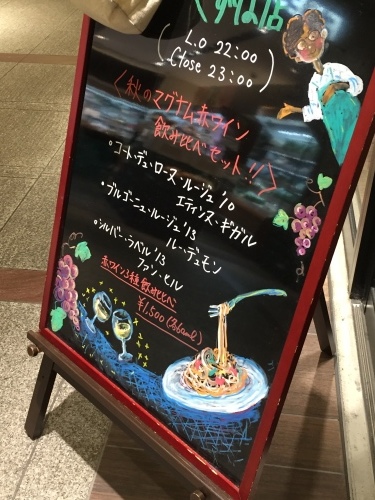 くずは店
( L.O 22:00
Close 23:00 )
〈秋のマグナム赤ワイン
飲み比べセット!!〉
•コート・デュ・ローヌ・ルージュ'10
エティンヌ・ギガル
•ブルゴーニュ・ルージュ'13
ルー・デュモン
•シルバー・ラベル'13
ファン・ヒル
赤ワイン3種飲み比べ
¥1,500(360ml)